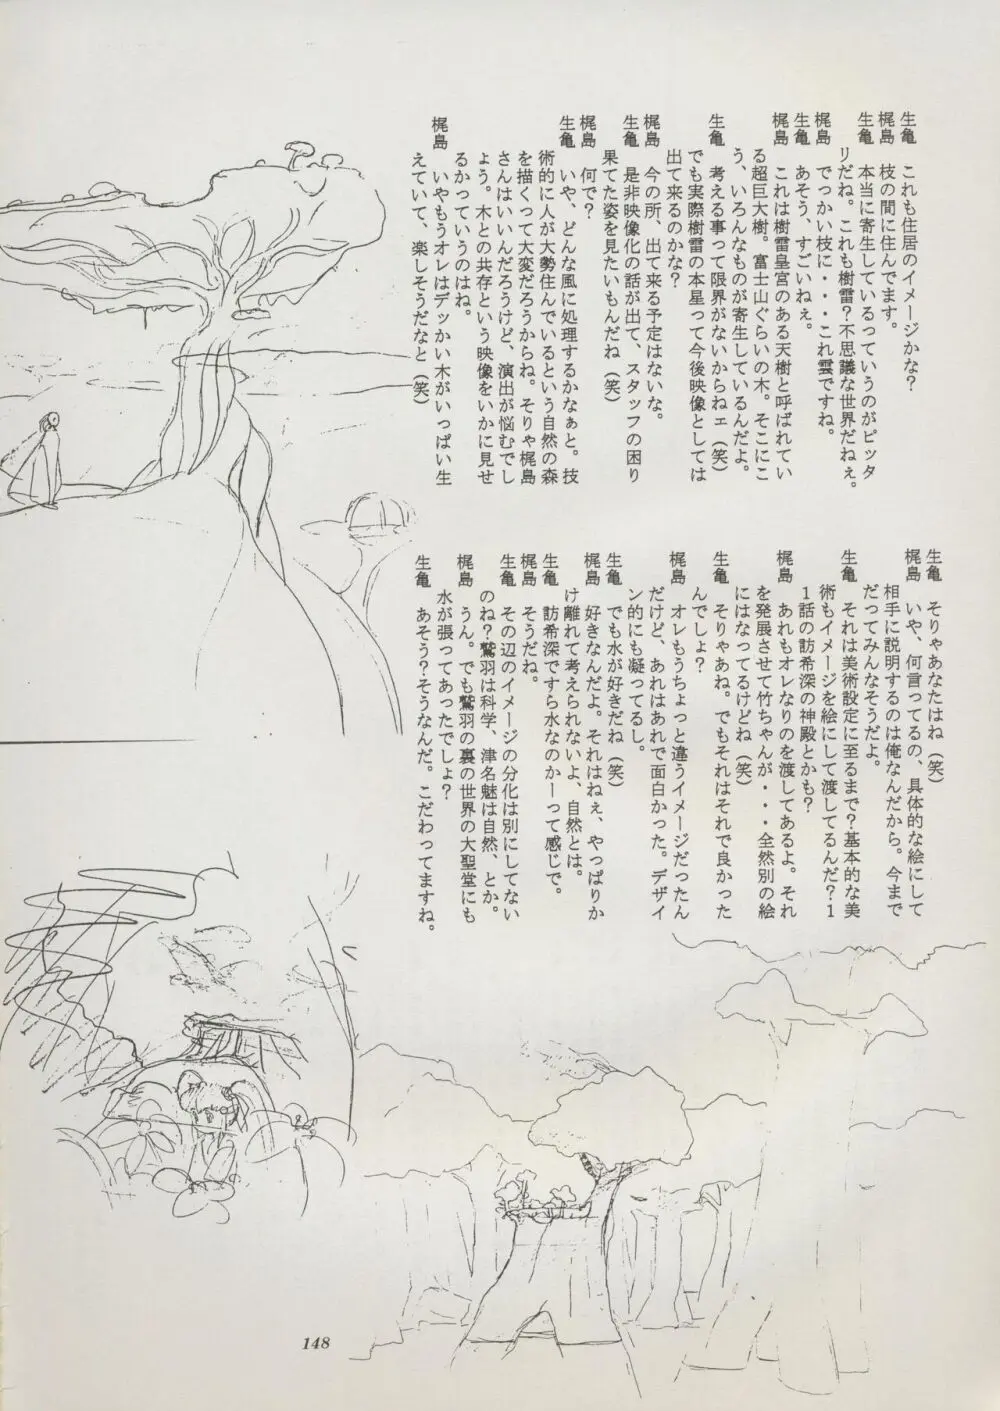 生亀　これも住居のイメージかな？
梶島　枝の間に住んでます。
生亀　本当に寄生しているっていうのがピッタ
リだね。これも樹雷？不思議な世界だねぇ。
梶島　でっかい枝に・・・これ雲ですね。
生亀　あそう、すごいねぇ。
梶島　これは樹雷皇宮のある天樹と呼ばれてい
る超巨大樹。富士山ぐらいの木。そこにこ
う、いろんなものが寄生しているんだよ。
生亀　考える事って限界がないからねェ（笑）
でも実際樹雷の本星って今後映像としては
出て来るのかな？
梶島　今の所、出て来る予定はないな。
生亀　是非映像化の話が出て、スタッフの困り
果てた姿を見たいもんだね（笑）
梶島　何で？
生亀　いや、どんな風に処理するかなぁと。技
術的に人が大勢住んでいるという自然の森
を描くって大変だろうからね。そりゃ梶島
さんはいいんだろうけど、演出が悩むでし
ょう。木との共存という映像をいかに見せ
るかっていうのはね。
梶島　いやもうオレはデッかい木がいっぱい生
えていて、楽しそうだなと（笑）
生亀　そりゃあなたはね（笑）
梶島　いや、何言ってるの、具体的な絵にして
相手に説明するのは俺なんだから。今まで
だってみんなそうだよ。
生亀　それは美術設定に至るまで？基本的な美
術もイメージを絵にして渡してるんだ？1
1話の訪希深の神殿とかも？
梶島　あれもオレなりのを渡してあるよ。それ
を発展させて竹ちゃんが・・・全然別の絵
にはなってるけどね（笑）
生亀　そりゃあね。でもそれはそれで良かった
んでしょ？
梶島　オレもうちょっと違うイメージだったん
だけど、あれはあれで面白かった。デザイ
ン的にも凝ってるし。
生亀　でも水が好きだね（笑）
梶島　好きなんだよ。それはねぇ、やっぱりか
け離れて考えられないよ、自然とは。
生亀　訪希深ですら水なのかーって感じで。
梶島　そうだね。
生亀　その辺のイメージの分化は別にしてない
のね？鷲羽は科学、津名魅は自然、とか。
梶島　うん。でも鷲羽の裏の世界の大聖堂にも
水が張ってあったでしょ？
生亀　あそう？そうなんだ。こだわってますね。
148